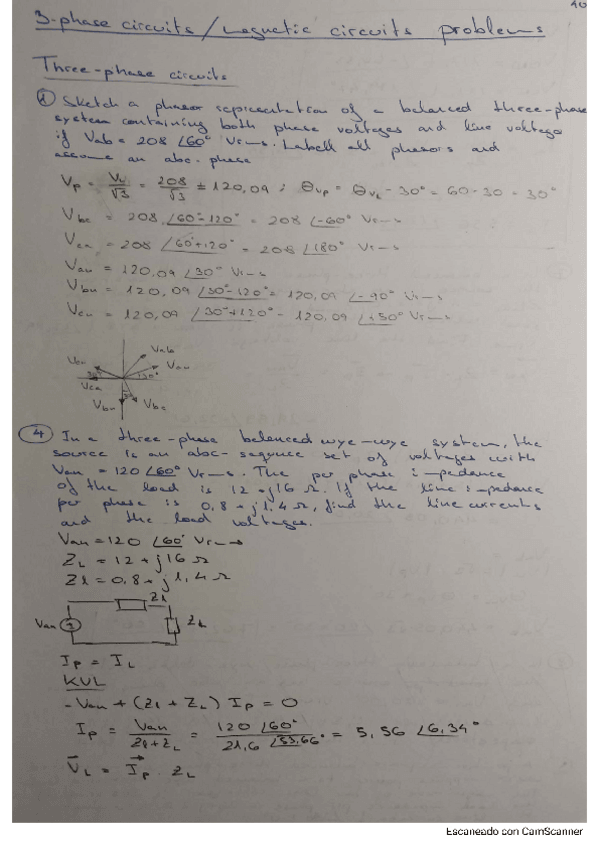 40
3-phase circuits / Magnetic circuits problems
Three-phase circuits
① Sketch a phasor representation of a balanced three-phase
system containing both phase voltages and line voltage
if Vab = 208 ∠60° Vrms. Labell all phasors and
assume an abc-phase
Vp = VL/√3 = 208/√3 = 120,09 ; θVp = θVL - 30° = 60 - 30 = 30°
Vbc = 208 ∠60°-120° = 208 ∠-60° Vrms
Vca = 208 ∠60°+120° = 208 ∠180° Vrms
Van = 120,09 ∠30° Vrms
Vbn = 120,09 ∠30°-120° = 120,09 ∠-90° Vrms
Vcn = 120,09 ∠30°+120° = 120,09 ∠150° Vrms
Vab
Vcn Van
30° 30°
Vca
Vbn Vbc
④ In a three-phase balanced wye-wye system, the
source is an abc-sequence set of voltages with
Van = 120 ∠60° Vrms. The per phase impedance
of the load is 12 + j16 Ω. If the line impedance
per phase is 0,8 + j1,4 Ω, find the line currents
and the load voltages.
Van = 120 ∠60° Vrms
ZL = 12 + j16 Ω
Zl = 0,8 + j1,4 Ω
Zl
Van ZL
Ip = IL
KVL
-Van + (Zl + ZL) Ip = 0
Ip = Van/Zl+ZL = 120 ∠60°/21,6 ∠53,66° = 5,56 ∠6,34°
VL = Ip · ZL
Escaneado con CamScanner